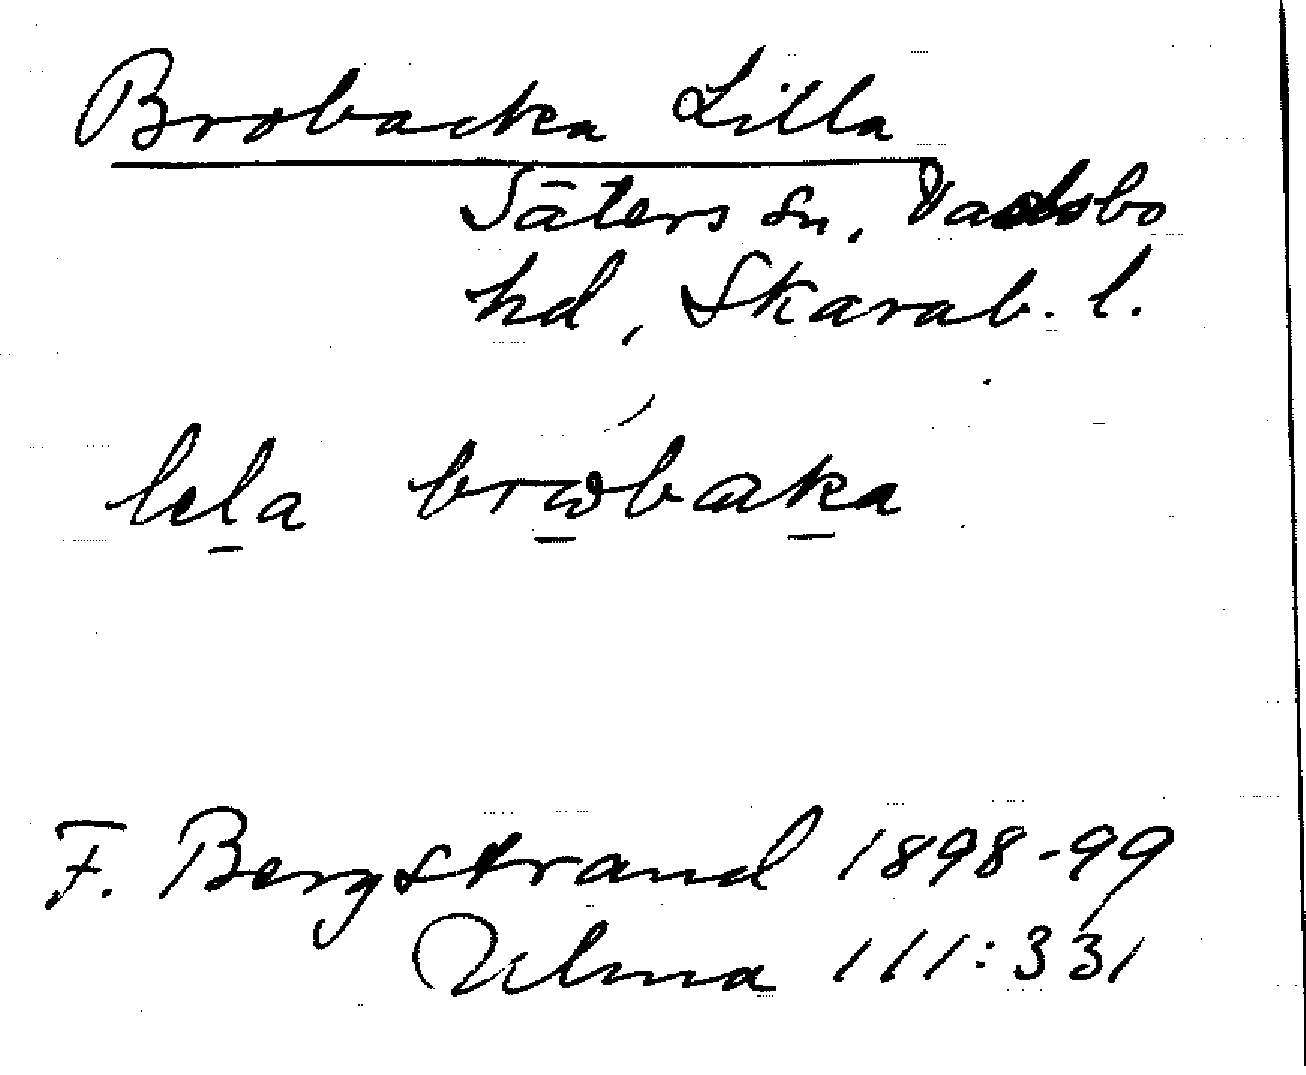 Brobacka Lilla
Säters sn, Vadsbo
hd, Skarab. l.
lela brωbaka
F. Bergstrand 1898-99
Ulma 111:331